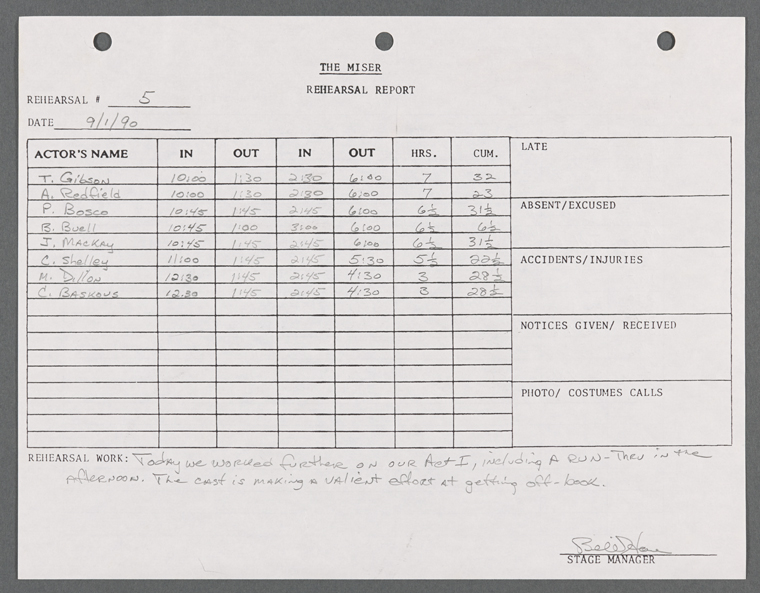 THE MISER
REHEARSAL REPORT
REHEARSAL # 5
DATE 9/1/90
ACTOR'S NAME IN OUT IN OUT HRS. CUM.
T. Gibson 10:00 1:30 2:30 6:00 7 32
A. Redfield 10:00 1:30 2:30 6:00 7 23
P. Bosco 10:45 1:45 2:45 6:00 6½ 31½
B. Buell 10:45 1:00 3:00 6:00 6½ 6½
J. MacKay 10:45 1:45 2:45 6:00 6½ 31½
C. Shelley 11:00 1:45 2:45 5:30 5½ 22½
M. Dillon 12:30 1:45 2:45 4:30 3 28½
C. Baskous 12:30 1:45 2:45 4:30 3 28½
LATE
ABSENT/EXCUSED
ACCIDENTS/INJURIES
NOTICES GIVEN/ RECEIVED
PHOTO/ COSTUMES CALLS
REHEARSAL WORK: Today we worked further on our Act I, including a run-thru in the
afternoon. The cast is making a valient effort at getting off-book.
STAGE MANAGER